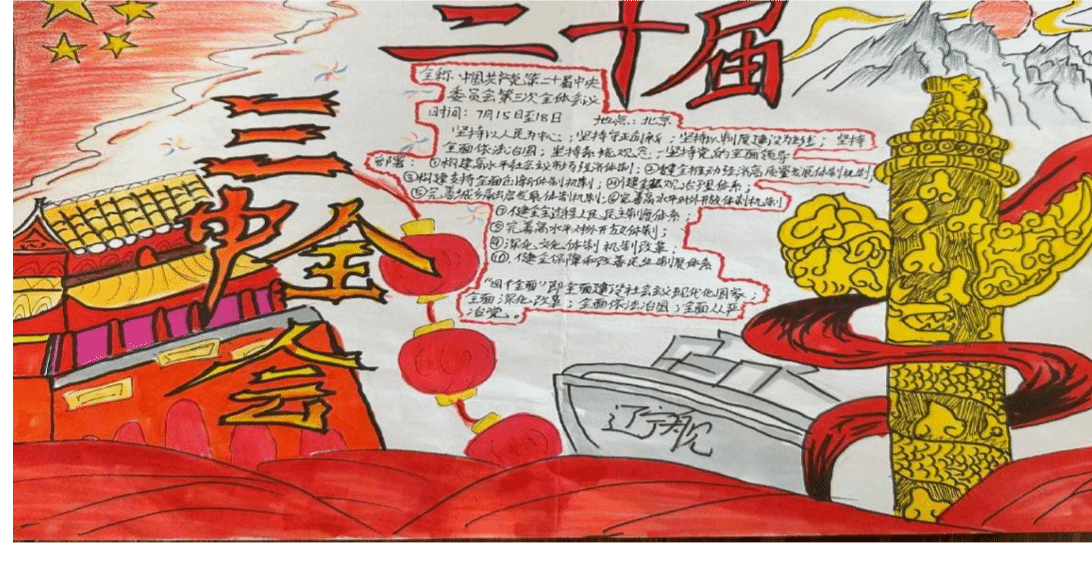 二十届
三中全会
全称:中国共产党第二十届中央
委员会第三次全体会议
时间:7月15日至18日 地点:北京
坚持以人民为中心;坚持守正创新;坚持以制度建设为主线;坚持
全面依法治国;坚持系统观念;坚持党的全面领导
部署:①构建高水平社会主义市场经济体制;②健全推动经济高质量发展体制机制
③构建支持全面创新体制机制;④健全宏观治理体系;
⑤完善城乡融合发展体制机制;⑥完善高水平对外开放体制机制
⑦健全全过程人民民主制度体系;
⑧完善高水平对外开放体制;
⑨深化文化体制机制改革
⑩健全保障和改善民生制度体系
“四个全面”即全面建设社会主义现代化国家;
全面深化改革;全面依法治国;全面从严
治党。
辽宁舰